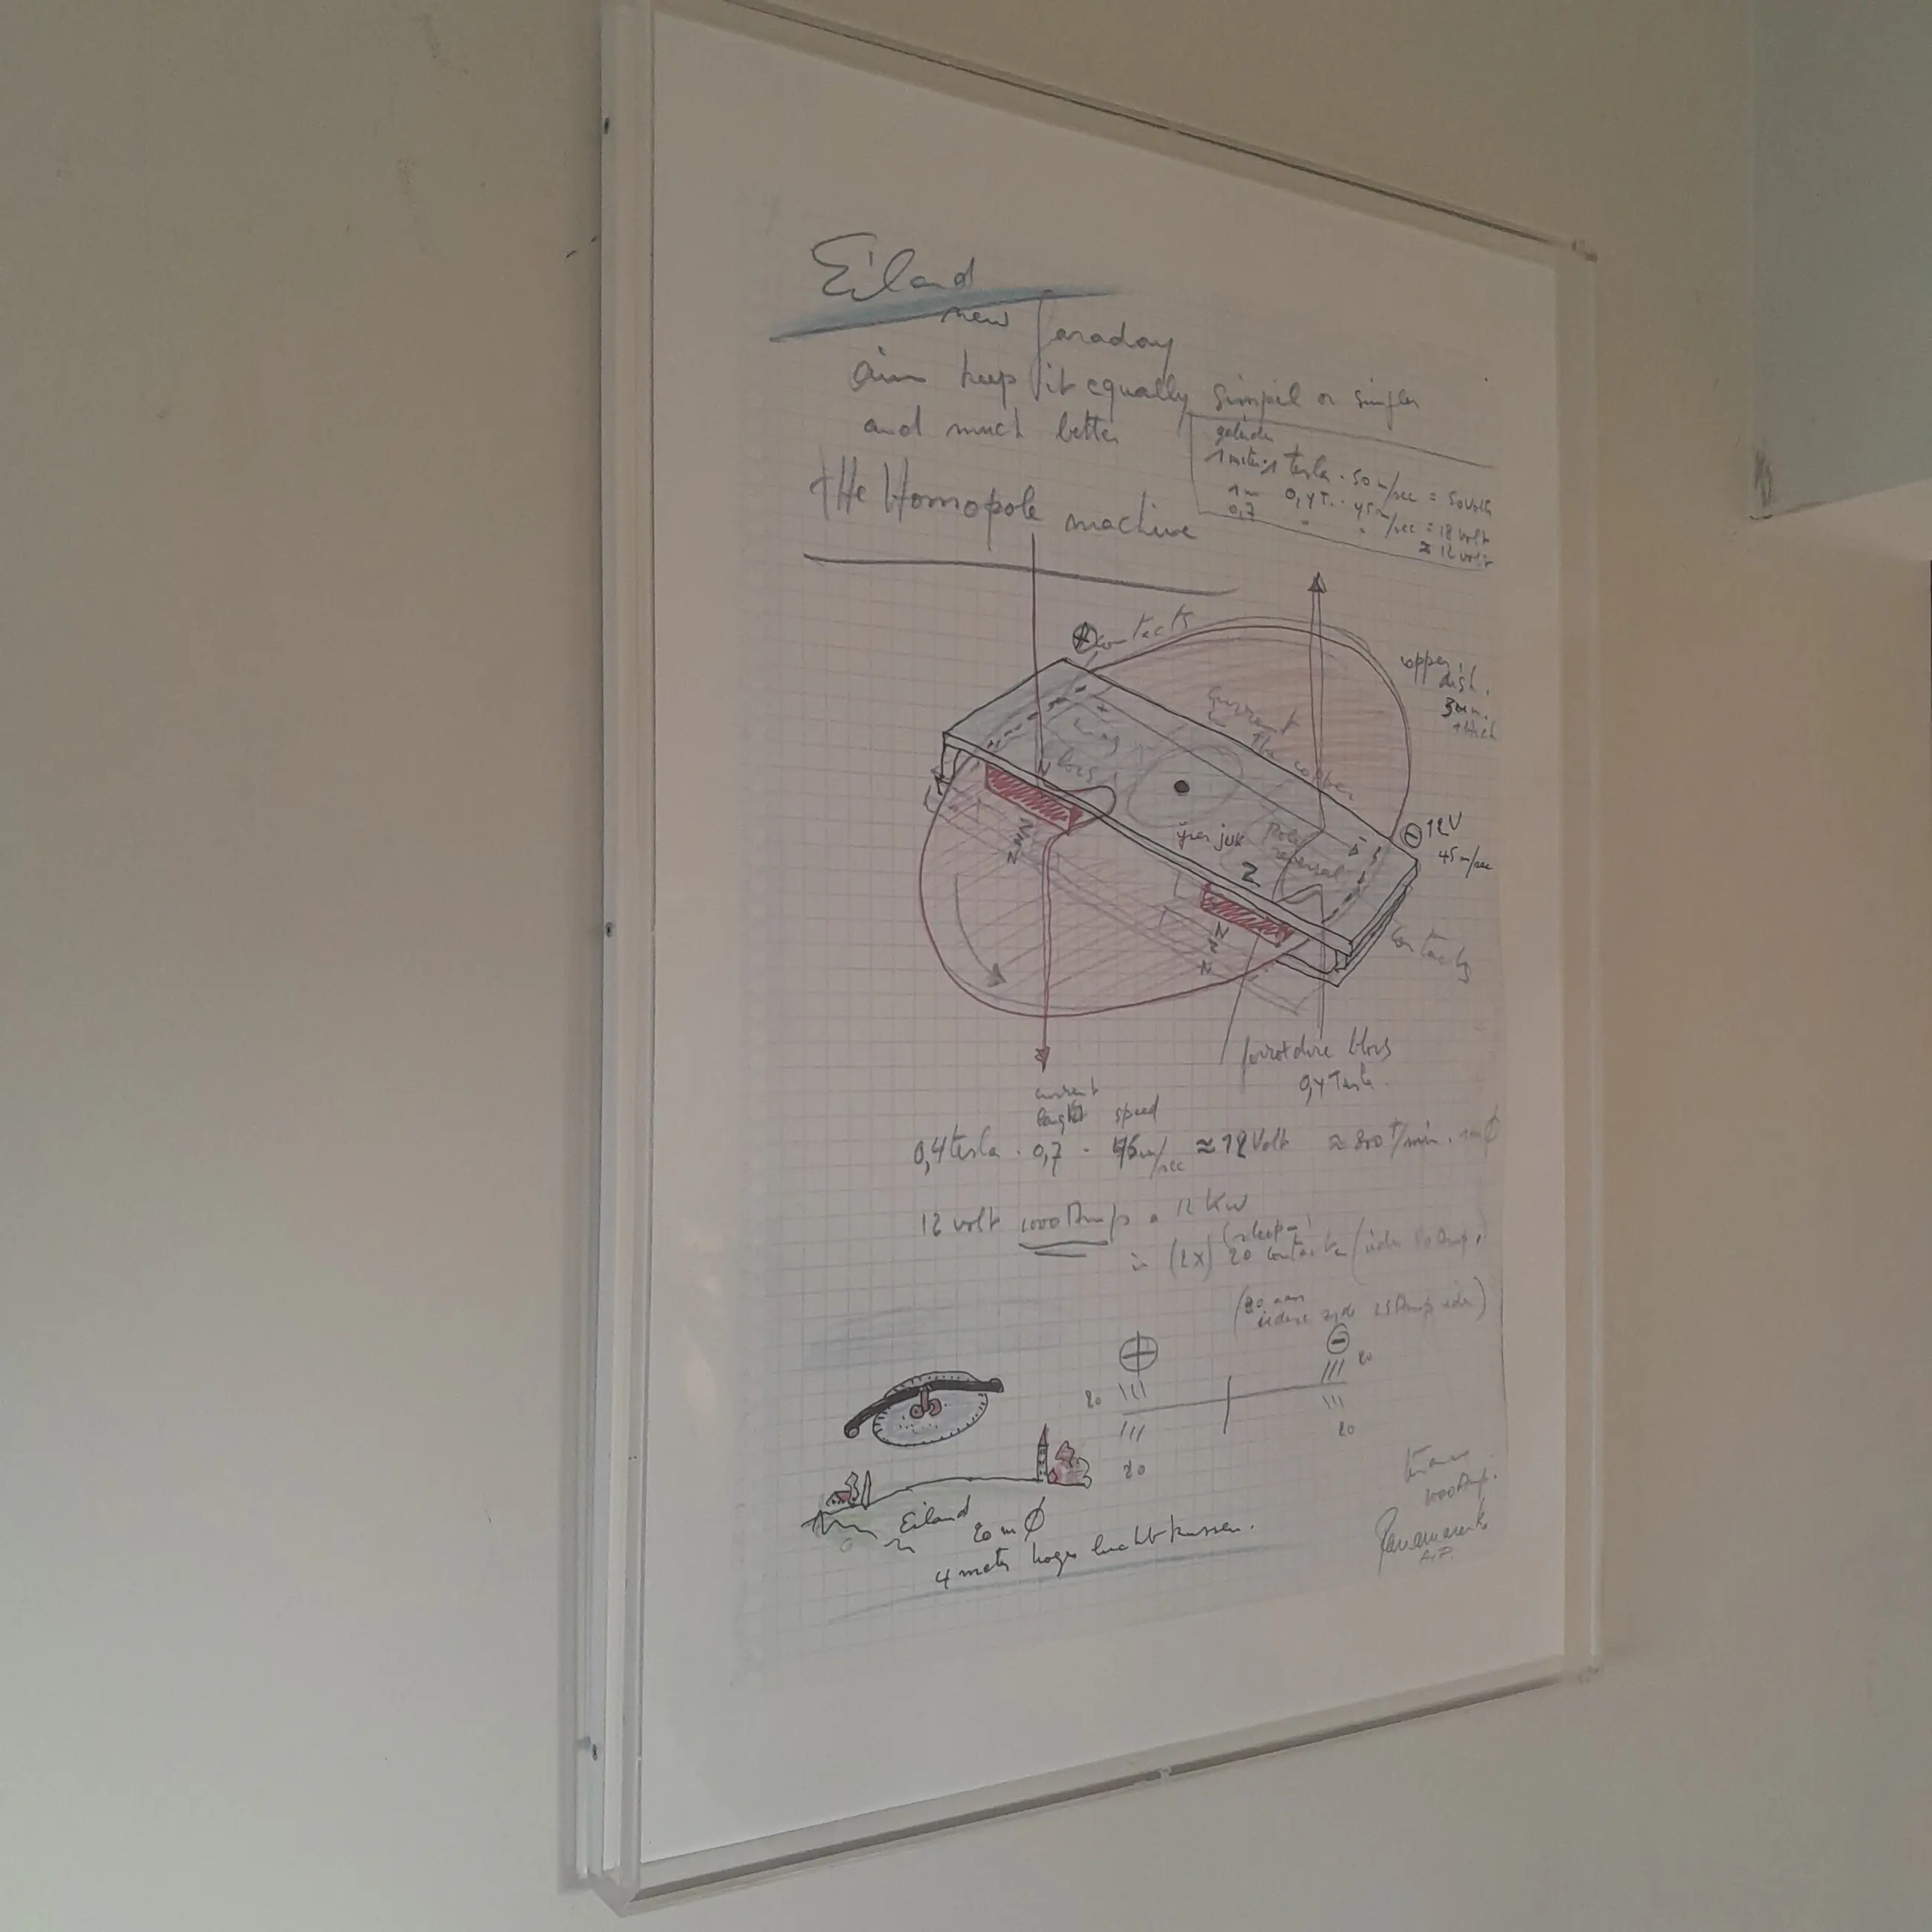 Eiland
new Faraday
aim keep it equally simpel or simpler
and much better
tHe Homopole machine
1 meter. 1 Tesla . 50 m/sec = 50 Volt
1m 0,4T. . 45m/sec = 18 volt
0,7 " " ≈ 12 volt
⊕ contacts
copper
dish.
3mm.
thick
current
copper
mag
blocs
N
N
Z
N
ijzer juk
Pole
reversal
Z
⊖ 12V
45 m/sec
N
Z
N
contacts
blocs
0,4 Tesla.
current
lenght speed
0,4 tesla . 0,7 . 45m/sec ≈ 12 Volt ≈ 800 t/min. 1m Ø
12 volt 1000 Amp = 12 kW
(sleep-)
in (2x) 20 contacten (ieder 50 Amp.)
(20 aan
iedere zijde 25 Amp ieder)
⊕ ⊖
20
20
20
20
1000 Amp.
Eiland
20 m Ø
4 meter hoge luchtkussen.
Panamarenko